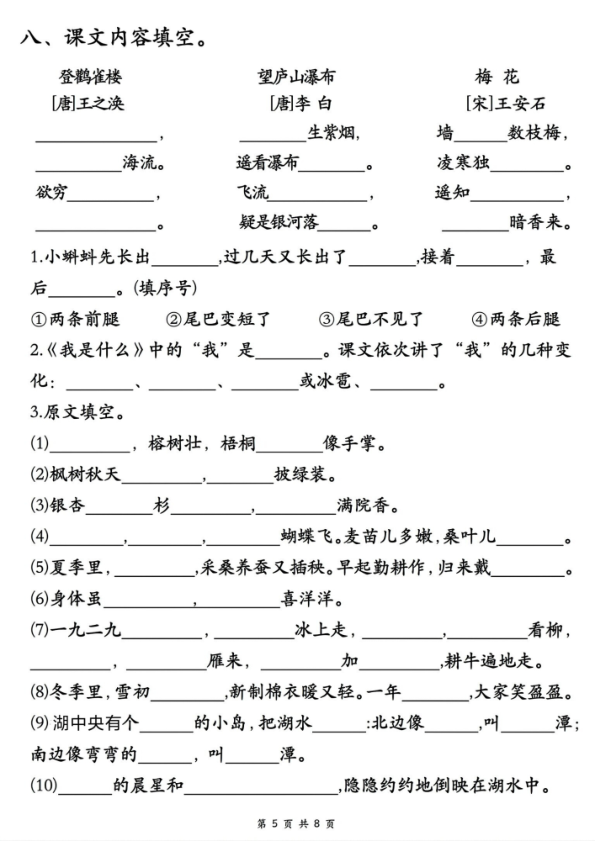 八、课文内容填空。
登鹳雀楼 望庐山瀑布 梅 花
[唐]王之涣 [唐]李 白 [宋]王安石
____________, ______生紫烟, 墙_____数枝梅,
________海流。 遥看瀑布______。 凌寒独______。
欲穷________, 飞流_________, 遥知________,
____________。 疑是银河落_____。 ______暗香来。
1.小蝌蚪先长出______,过几天又长出了______,接着______，最
后______。(填序号)
①两条前腿 ②尾巴变短了 ③尾巴不见了 ④两条后腿
2.《我是什么》中的“我”是______。课文依次讲了“我”的几种变
化：______、______、______或冰雹、______。
3.原文填空。
(1)_______，榕树壮，梧桐______像手掌。
(2)枫树秋天_______,______披绿装。
(3)银杏______杉_______,_______满院香。
(4)_______,_______,_______蝴蝶飞。麦苗儿多嫩,桑叶儿______。
(5)夏季里,_______,采桑养蚕又插秧。早起勤耕作,归来戴_______。
(6)身体虽________,________喜洋洋。
(7)一九二九_______,_______冰上走,_______,_______看柳,
_______,_______雁来,_______加_______,耕牛遍地走。
(8)冬季里,雪初_______,新制棉衣暖又轻。一年_______,大家笑盈盈。
(9)湖中央有个_____的小岛,把湖水_____:北边像_____,叫_____潭;
南边像弯弯的_____，叫_____潭。
(10)_____的晨星和______________,隐隐约约地倒映在湖水中。
第 5 页 共 8 页